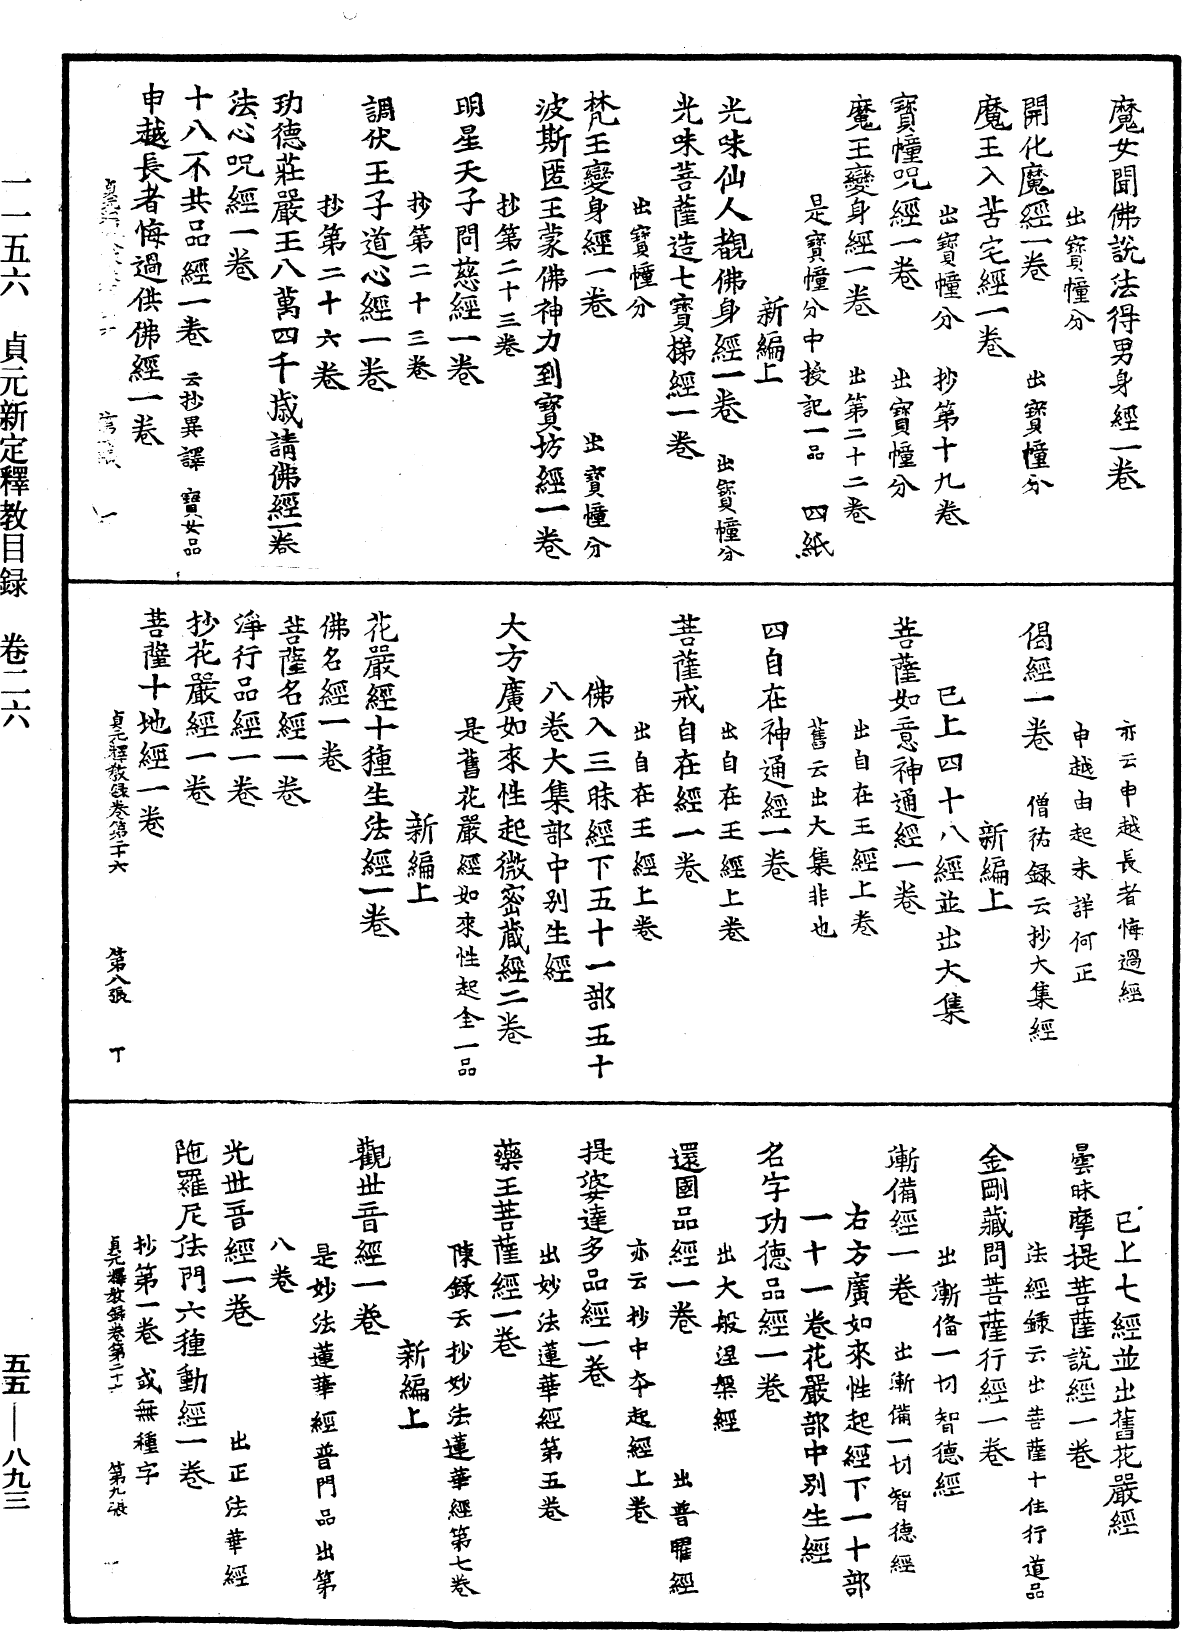 魔女聞佛說法得男身經一卷
出寶幢分
開化魔經一卷　出寶幢分
魔王入苦宅經一卷
出寶幢分　抄第十九卷
寶幢呪經一卷　出寶幢分
魔王變身經一卷　出第二十二卷
是寶幢分中授記一品　四紙
新編上
光味仙人覩佛身經一卷　出寶幢分
光味菩薩造七寶梯經一卷
出寶幢分
梵王變身經一卷　出寶幢分
波斯匿王蒙佛神力到寶坊經一卷
抄第二十三卷
明星天子問慈經一卷
抄第二十三卷
調伏王子道心經一卷
抄第二十六卷
功德莊嚴王八萬四千歲請佛經一卷
法心呪經一卷
十八不共品經一卷　云抄異譯　寶女品
申越長者悔過供佛經一卷
亦云申越長者悔過經
申越由起未詳何正
偈經一卷　僧祐錄云抄大集經
新編上
已上四十八經並出大集
菩薩如意神通經一卷
出自在王經上卷
舊云出大集非也
四自在神通經一卷
出自在王經上卷
菩薩戒自在經一卷
出自在王經上卷
佛入三昧經下五十一部五十
八卷大集部中別生經
大方廣如來性起微密藏經二卷
是舊花嚴經如來性起全一品
新編上
花嚴經十種生法經一卷
佛名經一卷
菩薩名經一卷
淨行品經一卷
抄花嚴經一卷
菩薩十地經一卷
貞元釋教錄卷第二十六　第八張　丁
已上七經並出舊花嚴經
曇昧摩提菩薩說經一卷
法經錄云出菩薩十住行道品
金剛藏問菩薩行經一卷
出漸俻一切智德經
漸備經一卷　出漸備一切智德經
右方廣如來性起經下一十部
一十一卷花嚴部中別生經
名字功德品經一卷
出大般涅槃經
還國品經一卷　出普曜經
亦云抄中本起經上卷
提婆達多品經一卷
出妙法蓮華經第五卷
藥王菩薩經一卷
陳錄云抄妙法蓮華經第七卷
新編上
觀世音經一卷
是妙法蓮華經普門品出第
八卷
光世音經一卷　出正法華經
陁羅尼法門六種動經一卷
抄第一卷　或無種字
貞元釋教錄卷第二十六　第九張
一一五六　貞元新定釋教目録　卷二六
五五—八九三